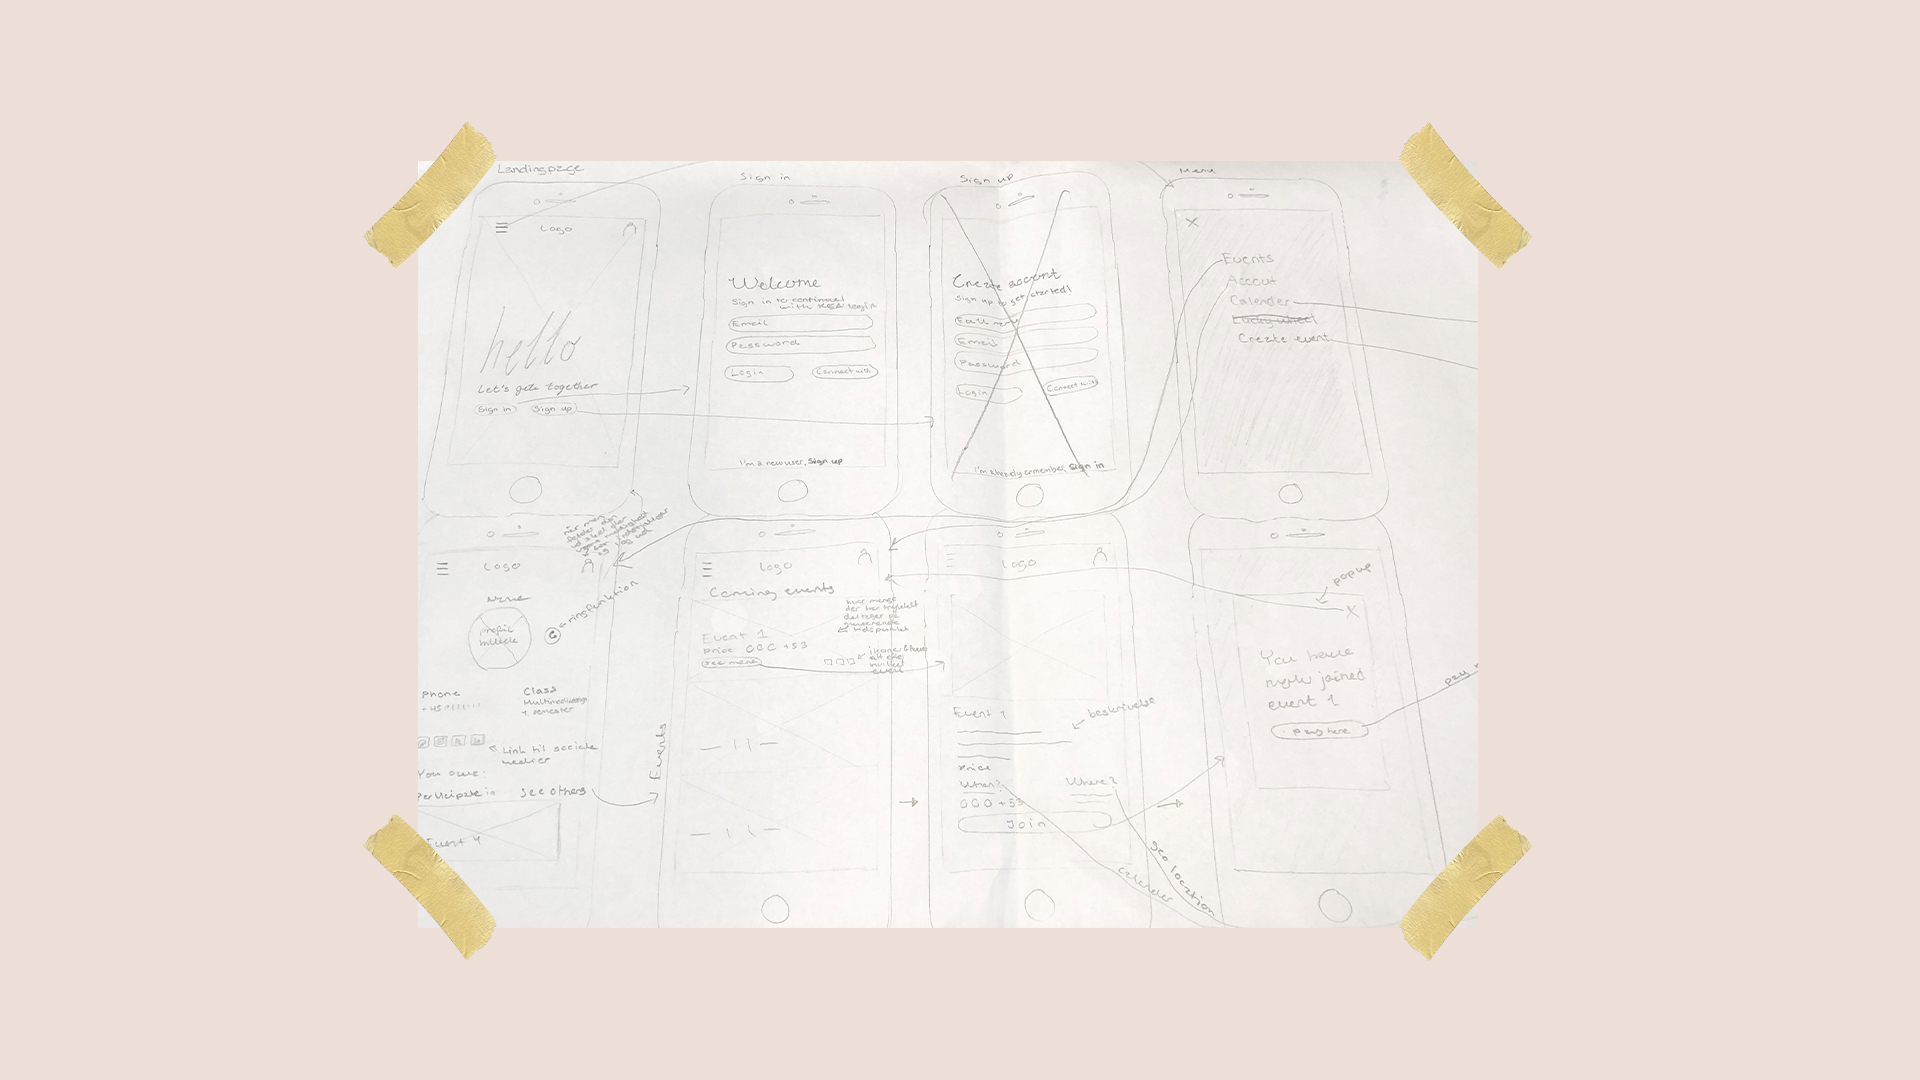 Landingpage
Logo
hello
Let's gets together
Sign in
Sign up
Sign in
Welcome
Sign in to continue!
with login
Email
Password
Login
Connect with
I'm a new user, Sign up
Sign up
Create account
Sign up to get started!
Email
Password
Login
Connect with
I'm already a member, Sign in
Menu
X
Events
Accout
Calender
Lucky wheel
Create event
når man
Logo
Name
profil
billede
ringfunktion
Phone
+45
Class
Multimediedesign
4. semester
Link til sociale
medier
You owe:
Participate in
See others
Event 4
Events
Logo
Coming events
Event 1
Price 000 +53
See more
hvor mange
der har
deltager på
Logo
Event 1
beskrivelse
Price
When?
Where?
000 +53
Join
calender
geo location
pop up
X
You have
now joined
event 1
pay here
pay